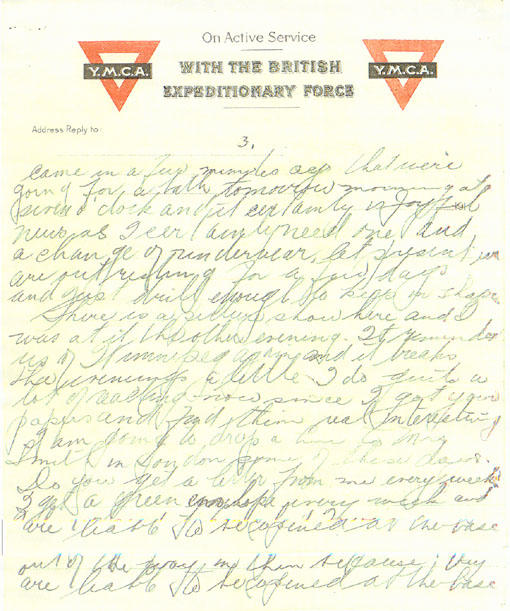 On Active Service
WITH THE BRITISH
EXPEDITIONARY FORCE
Y.M.C.A.
Y.M.C.A.
Address Reply to
3.
came in a few minutes ago that we're
going for a bath tomorrow morning at
o'clock and it certainly is joyful
news as I certainly need one and
a change of underwear, at present we
are out resting for a few days
and just drill enough to keep in shape
There is a picture show here and I
was at it the other evening. It reminded
us of Winnipeg again and it breaks
the evenings a little I do quite a
lot of reading now since I got your
papers and find them real interesting
I am going to drop a line to Mrs
Smith in London some of these days.
Do you get a letter from me every week
I get a green envelope every week and
are liable to be opened at the base
out of the them because they
are liable to be opened at the base